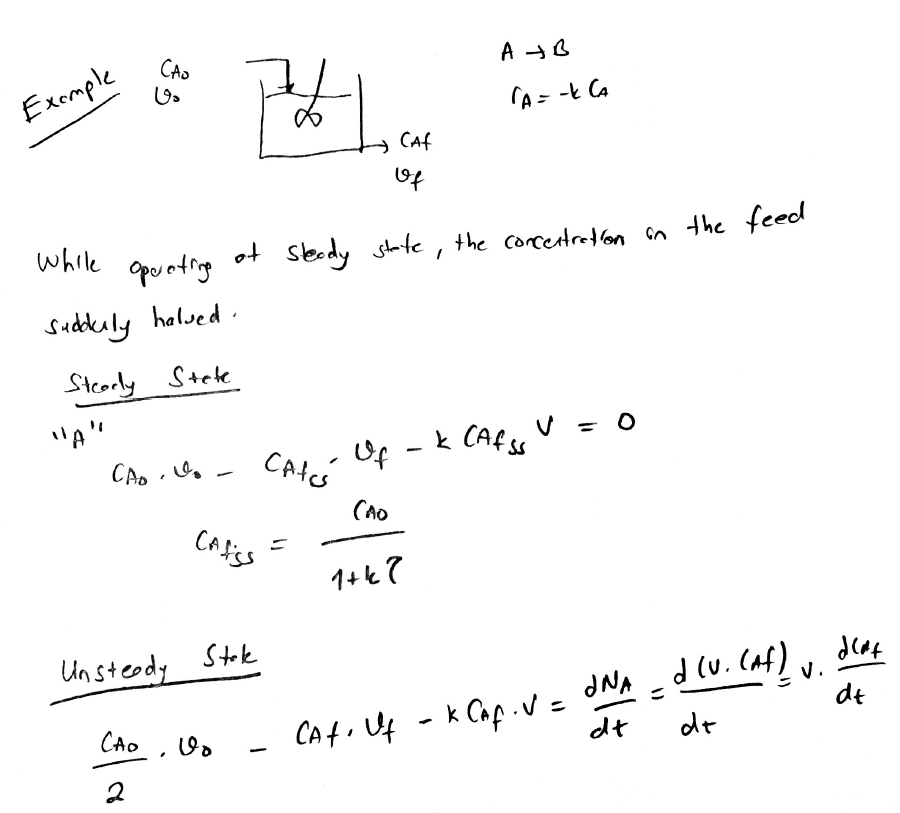 Example
CA0
υ0
A → B
rA = -k CA
CAf
υf
While operating at steady state, the concentration in the feed
suddenly halved.
Steady State
"A"
CA0 . υ0 - CAfss . υf - k CAfss V = 0
CAf,ss = CA0 / 1+kτ
Unsteady State
CA0 / 2 . υ0 - CAf . υf - k CAf . V = dNA / dt = d (V. CAf) / dt = V. dCAf / dt